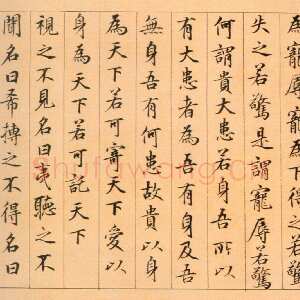 寵辱為下得之
失之若驚是謂寵辱若驚
何謂貴大患若身吾所以
有大患者為吾有身及吾
無身吾有何患故貴以身
為天下若可寄天下愛以
身為天下若可託天下
視之不見名曰夷聽之不
聞名曰希搏之不得名曰